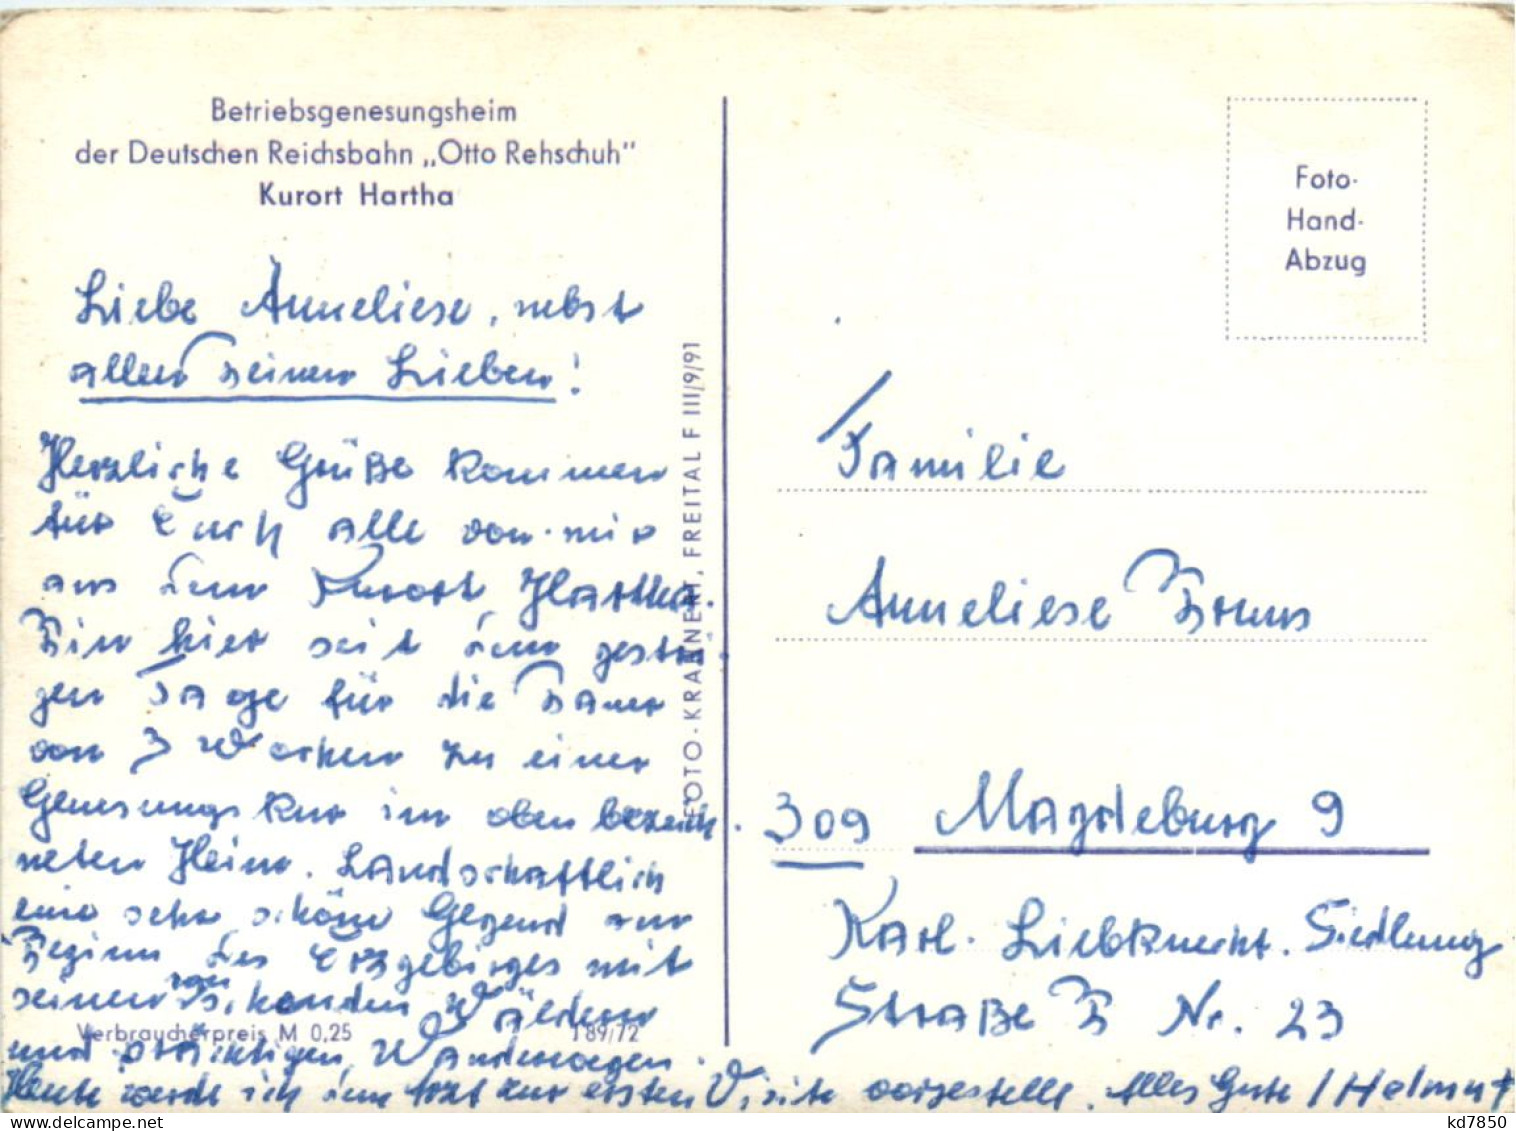 Betriebsgenesungsheim
der Deutschen Reichsbahn „Otto Rehschuh"
Kurort Hartha
Liebe Anneliese, nebst
allen Deinen Lieben!
Herzliche Grüße kommen
für Euch alle von mir
aus dem Kurort Hartha.
Bin hier seit dem gestri-
gen Tage für die Dauer
von 3 Wochen zu einer
Genesungskur im oben bezeich-
neten Heim. Landschaftlich
eine sehr schöne Gegend zum
Beginn des Erzgebirges mit
seinen Wäldern
und prächtigen Wanderwegen.
Heute werde ich dem Arzt zur ersten Visite vorgestellt. Alles Gute / Helmut
Verbraucherpreis M 0,25
J 89/72
FOTO-KRAENERT, FREITAL F III/9/91
Foto-
Hand-
Abzug
Familie
Anneliese Bruns
309 Magdeburg 9
Karl-Liebknecht-Siedlung
Straße B Nr. 23
kd7850